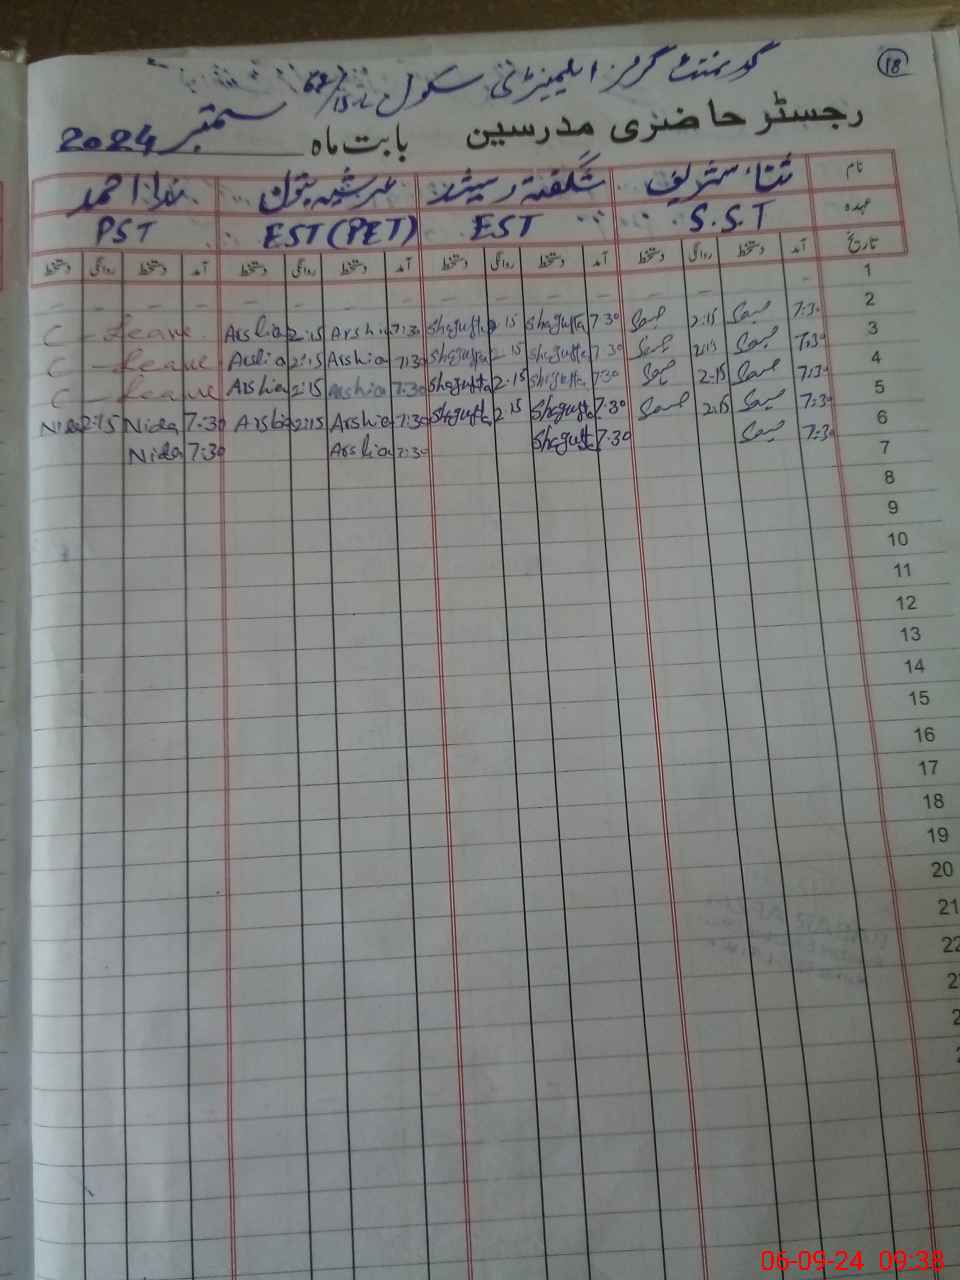 18
گورنمنٹ گرلز ایلیمنٹری سکول 68/15-L
رجسٹر حاضری مدرسین بابت ماہ ستمبر 2024
نام ثناء شریف شگفتہ رشید عرشیہ بتول ندا احمد
عہدہ S.S.T EST EST (PET) PST
تاریخ آمد دستخط روانگی دستخط آمد دستخط روانگی دستخط آمد دستخط روانگی دستخط آمد دستخط روانگی دستخط
1 – – – – – – – –
C – Leave Arshia 2:15 Arshia 7:30 Shagufta 2:15 Shagufta 7:30 2:15 7:30 2
C – Leave Arshia 2:15 Arshia 7:30 Shagufta 2:15 Shagufta 7:30 2:15 7:30 3
C – Leave Arshia 2:15 Arshia 7:30 Shagufta 2:15 Shagufta 7:30 2:15 7:30 4
Nida 2:15 Nida 7:30 Arshia 2:15 Arshia 7:30 Shagufta 2:15 Shagufta 7:30 2:15 7:30 5
Nida 7:30 Arshia 7:30 Shagufta 7:30 7:30 6
7
8
9
10
11
12
13
14
15
16
17
18
19
20
21
22
06-09-24 09:38